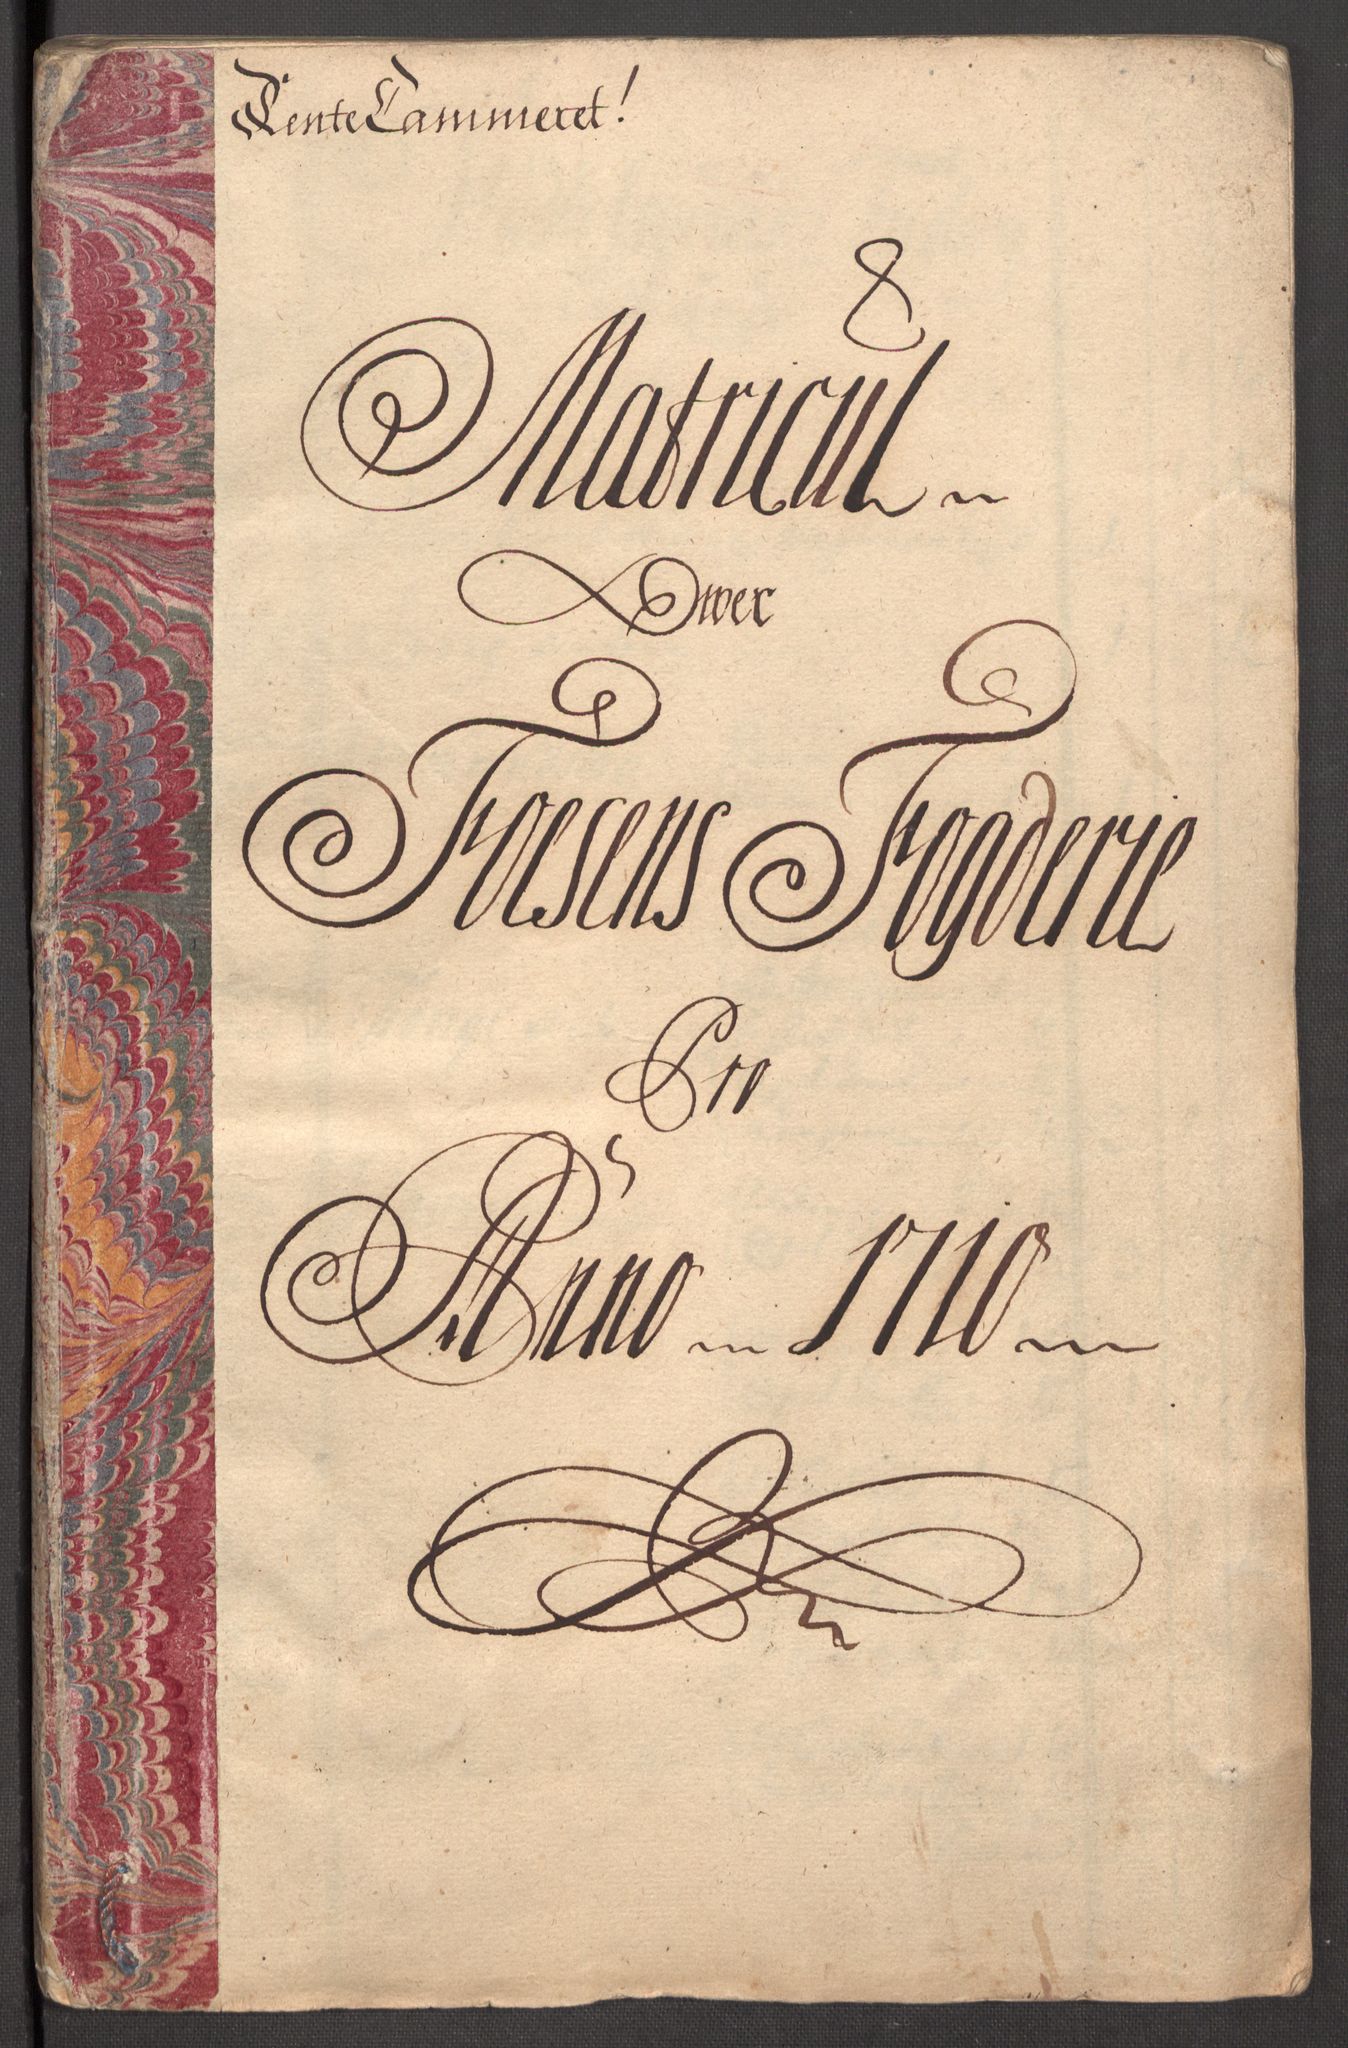 RenteCammeret!
8
Matricul
Ower
Foesens Fogderie
Pro
Anno 1710